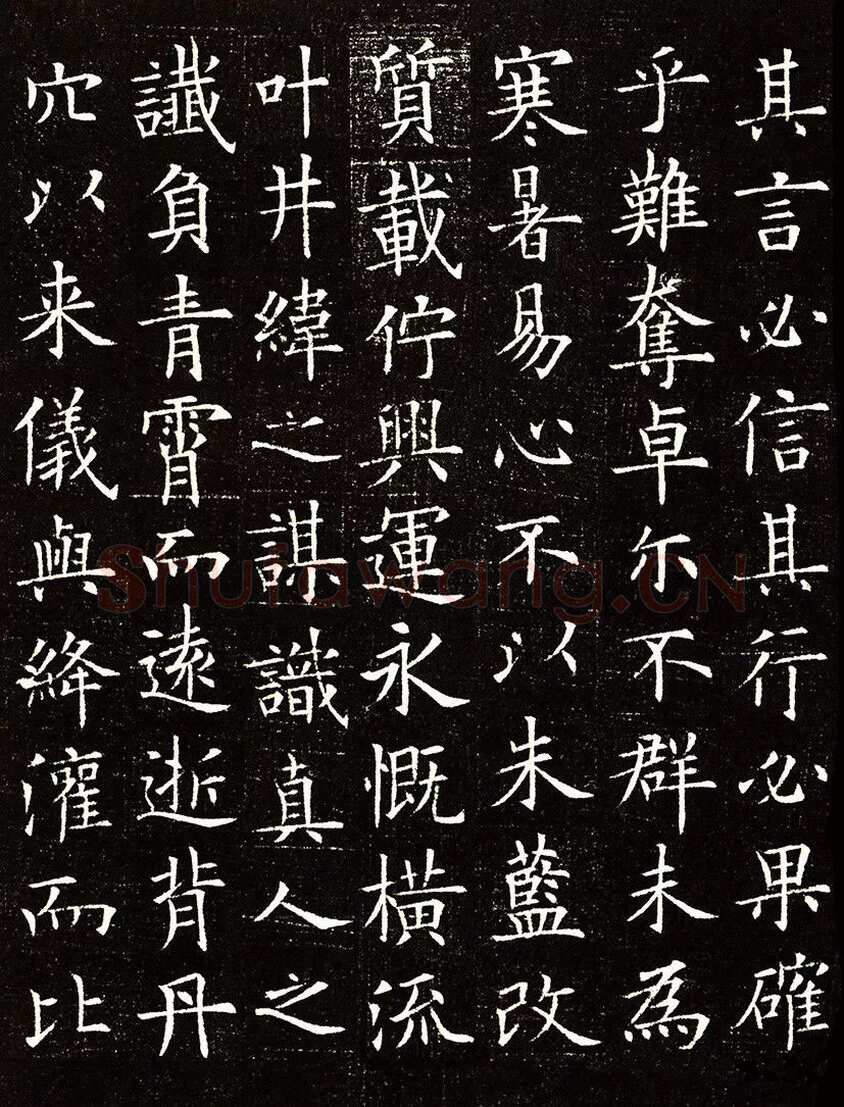 其言必信其行必果確
乎難奪卓尔不群未為
寒暑易心不以朱藍改
質載佇興運永慨橫流
叶井緯之謀識真人之
讖負青霄而遠逝背丹
穴以来儀與絳灌而比
Shufawang.CN